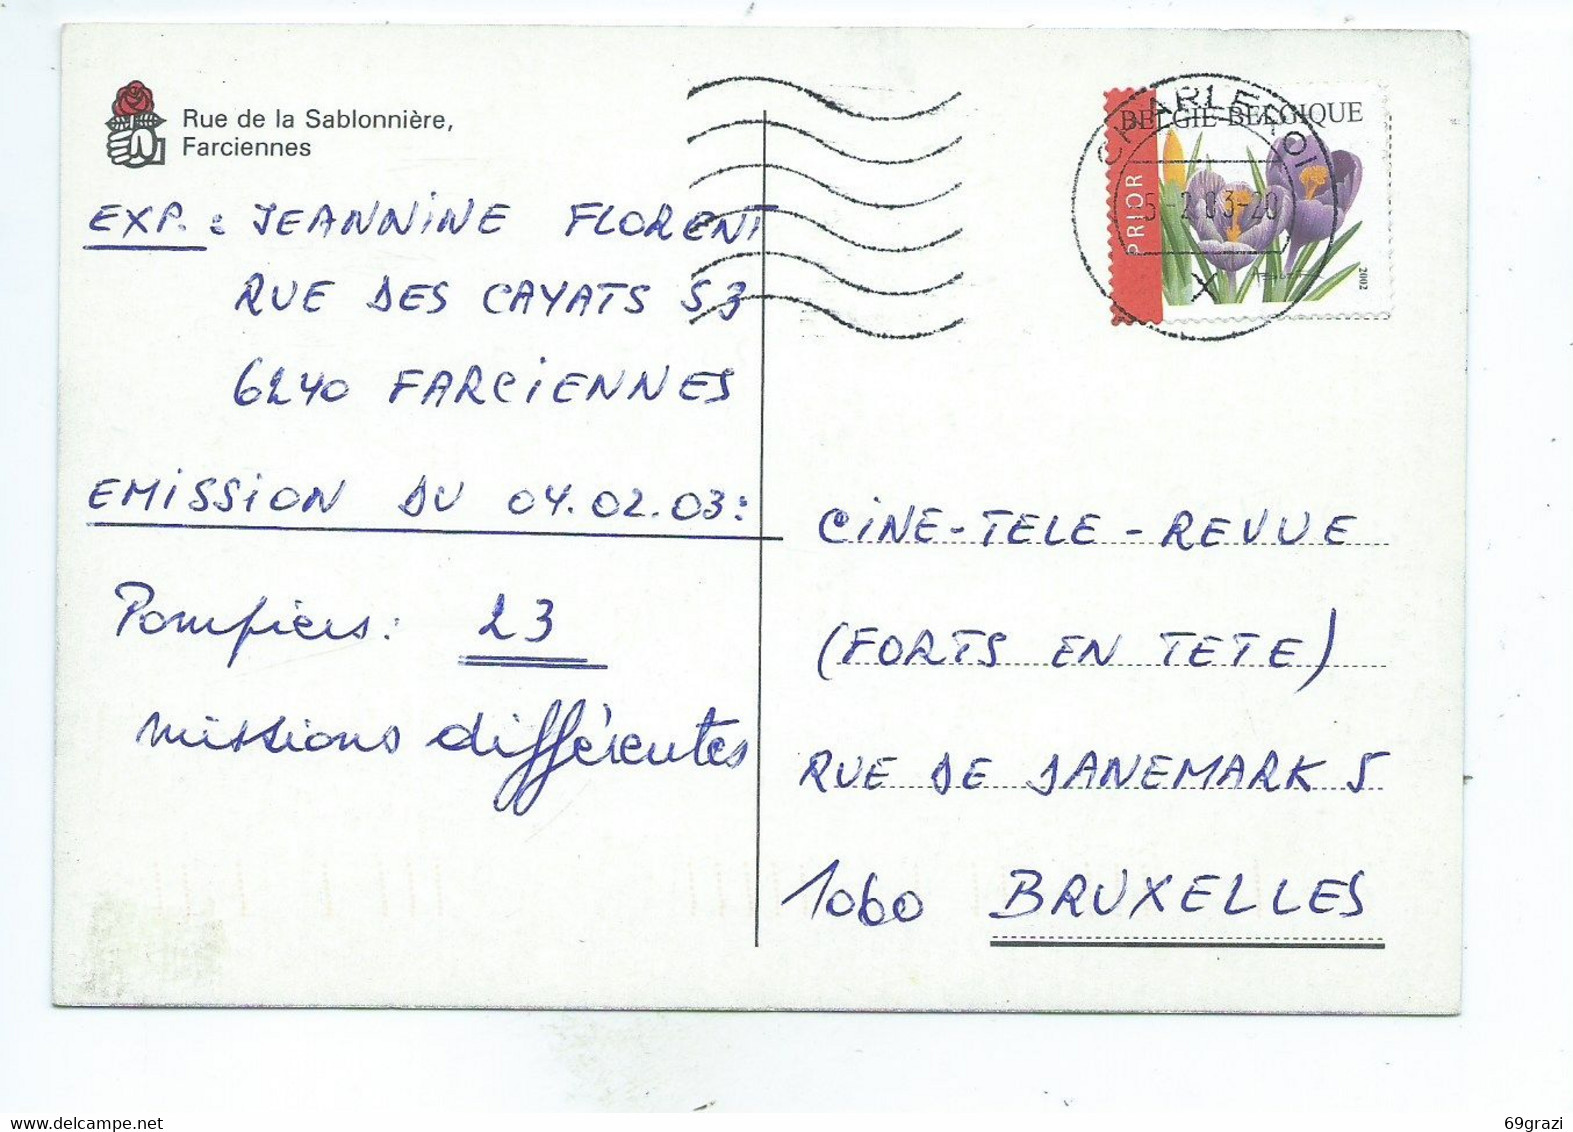 Rue de la Sablonnière,
Farciennes
EXP. : JEANNINE FLORENT
RUE DES CAYATS 53
6240 FARCIENNES
EMISSION DU 04.02.03:
Pompiers: 23
missions différentes
CHARLEROI
BELGIE-BELGIQUE
PRIOR
-5-2.03-20
X
2002
CINE-TELE-REVUE
(FORTS EN TETE)
RUE DE DANEMARK 5
1060 BRUXELLES
69grazi